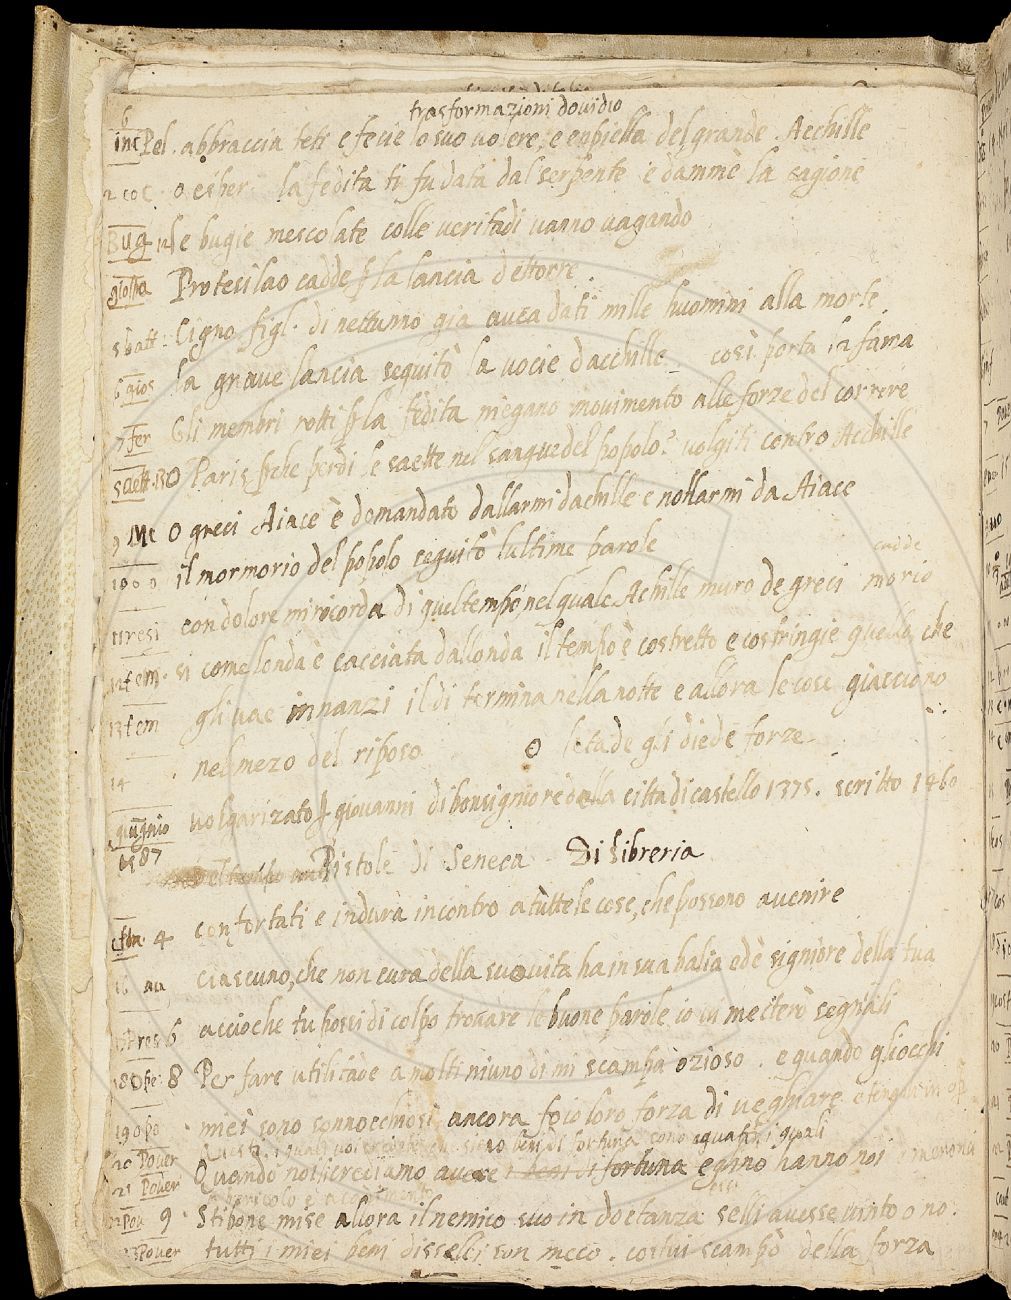 trasformazioni dovidio
6
inc Pel. abbraccia teti e fecie lo suo volere, e enpiella del grande Acchille
2 coc O ciper la fedita ti fu data dal serpente e damme la cagione
Bug le bugie mescolate colle veritadi vanno vagando
Protesilao cadde p la lancia dettorre.
5 batt: Cigno figl. di nettunno gia avea dati mille huomini alla morte
6 gios la grave lancia seguitò la vocie dacchille così porta la fama
7 fer Gli membri rotti p la fedita niegano movimento alle forze del correre
saett. O Paris pche perdi le saette nel sangue del popolo? volgiti contro Acchille
9 Mt O greci Aiace è domandato dallarmi dachille e nollarmi da Aiace
il mormorio del popolo seguitò lultime parole
cadde
11 resi con dolore mi ricorda di quel tempo, nel quale Achille muro de greci morio
12 tem. si come londa è cacciata dallonda il tempo è costretto e costringie quello, che
13 tem gli vae innanzi il dì termina nella notte e allora le cose giacciono
14 nel mezo del riposo O letade gli diede forze
volgarizato p giovanni di bonsigniore della citta di castello 1375. scritto 1460
giugnio
1587
Pistole di Seneca Di libreria
4 confortati e indura incontro a tutte le cose, che possono avenire
ciascuno, che non cura della sua vita ha in sua balia ed è signiore della tua
Pres 6 accioche tu possi di colpo trovare le buone parole io vi mecterò segniali
18 Ope: 8 Per fare utilitade a molti niuno dì mi scampa ozioso. e quando gliocchi
19 opo miei sono sonnocchiosi ancora fo io loro forza di veghiare e tengoli in op
beni di fortuna sono aguati, i quali
20 Pover Quando noi crediamo avere i beni di fortuna eglino hanno noi
21 Pover
Pov 9 Stibone mise allora il nemico suo in dottanza selli avesse vinto o no.
Pover tutti i miei beni disselli son meco. costui scampò della forza